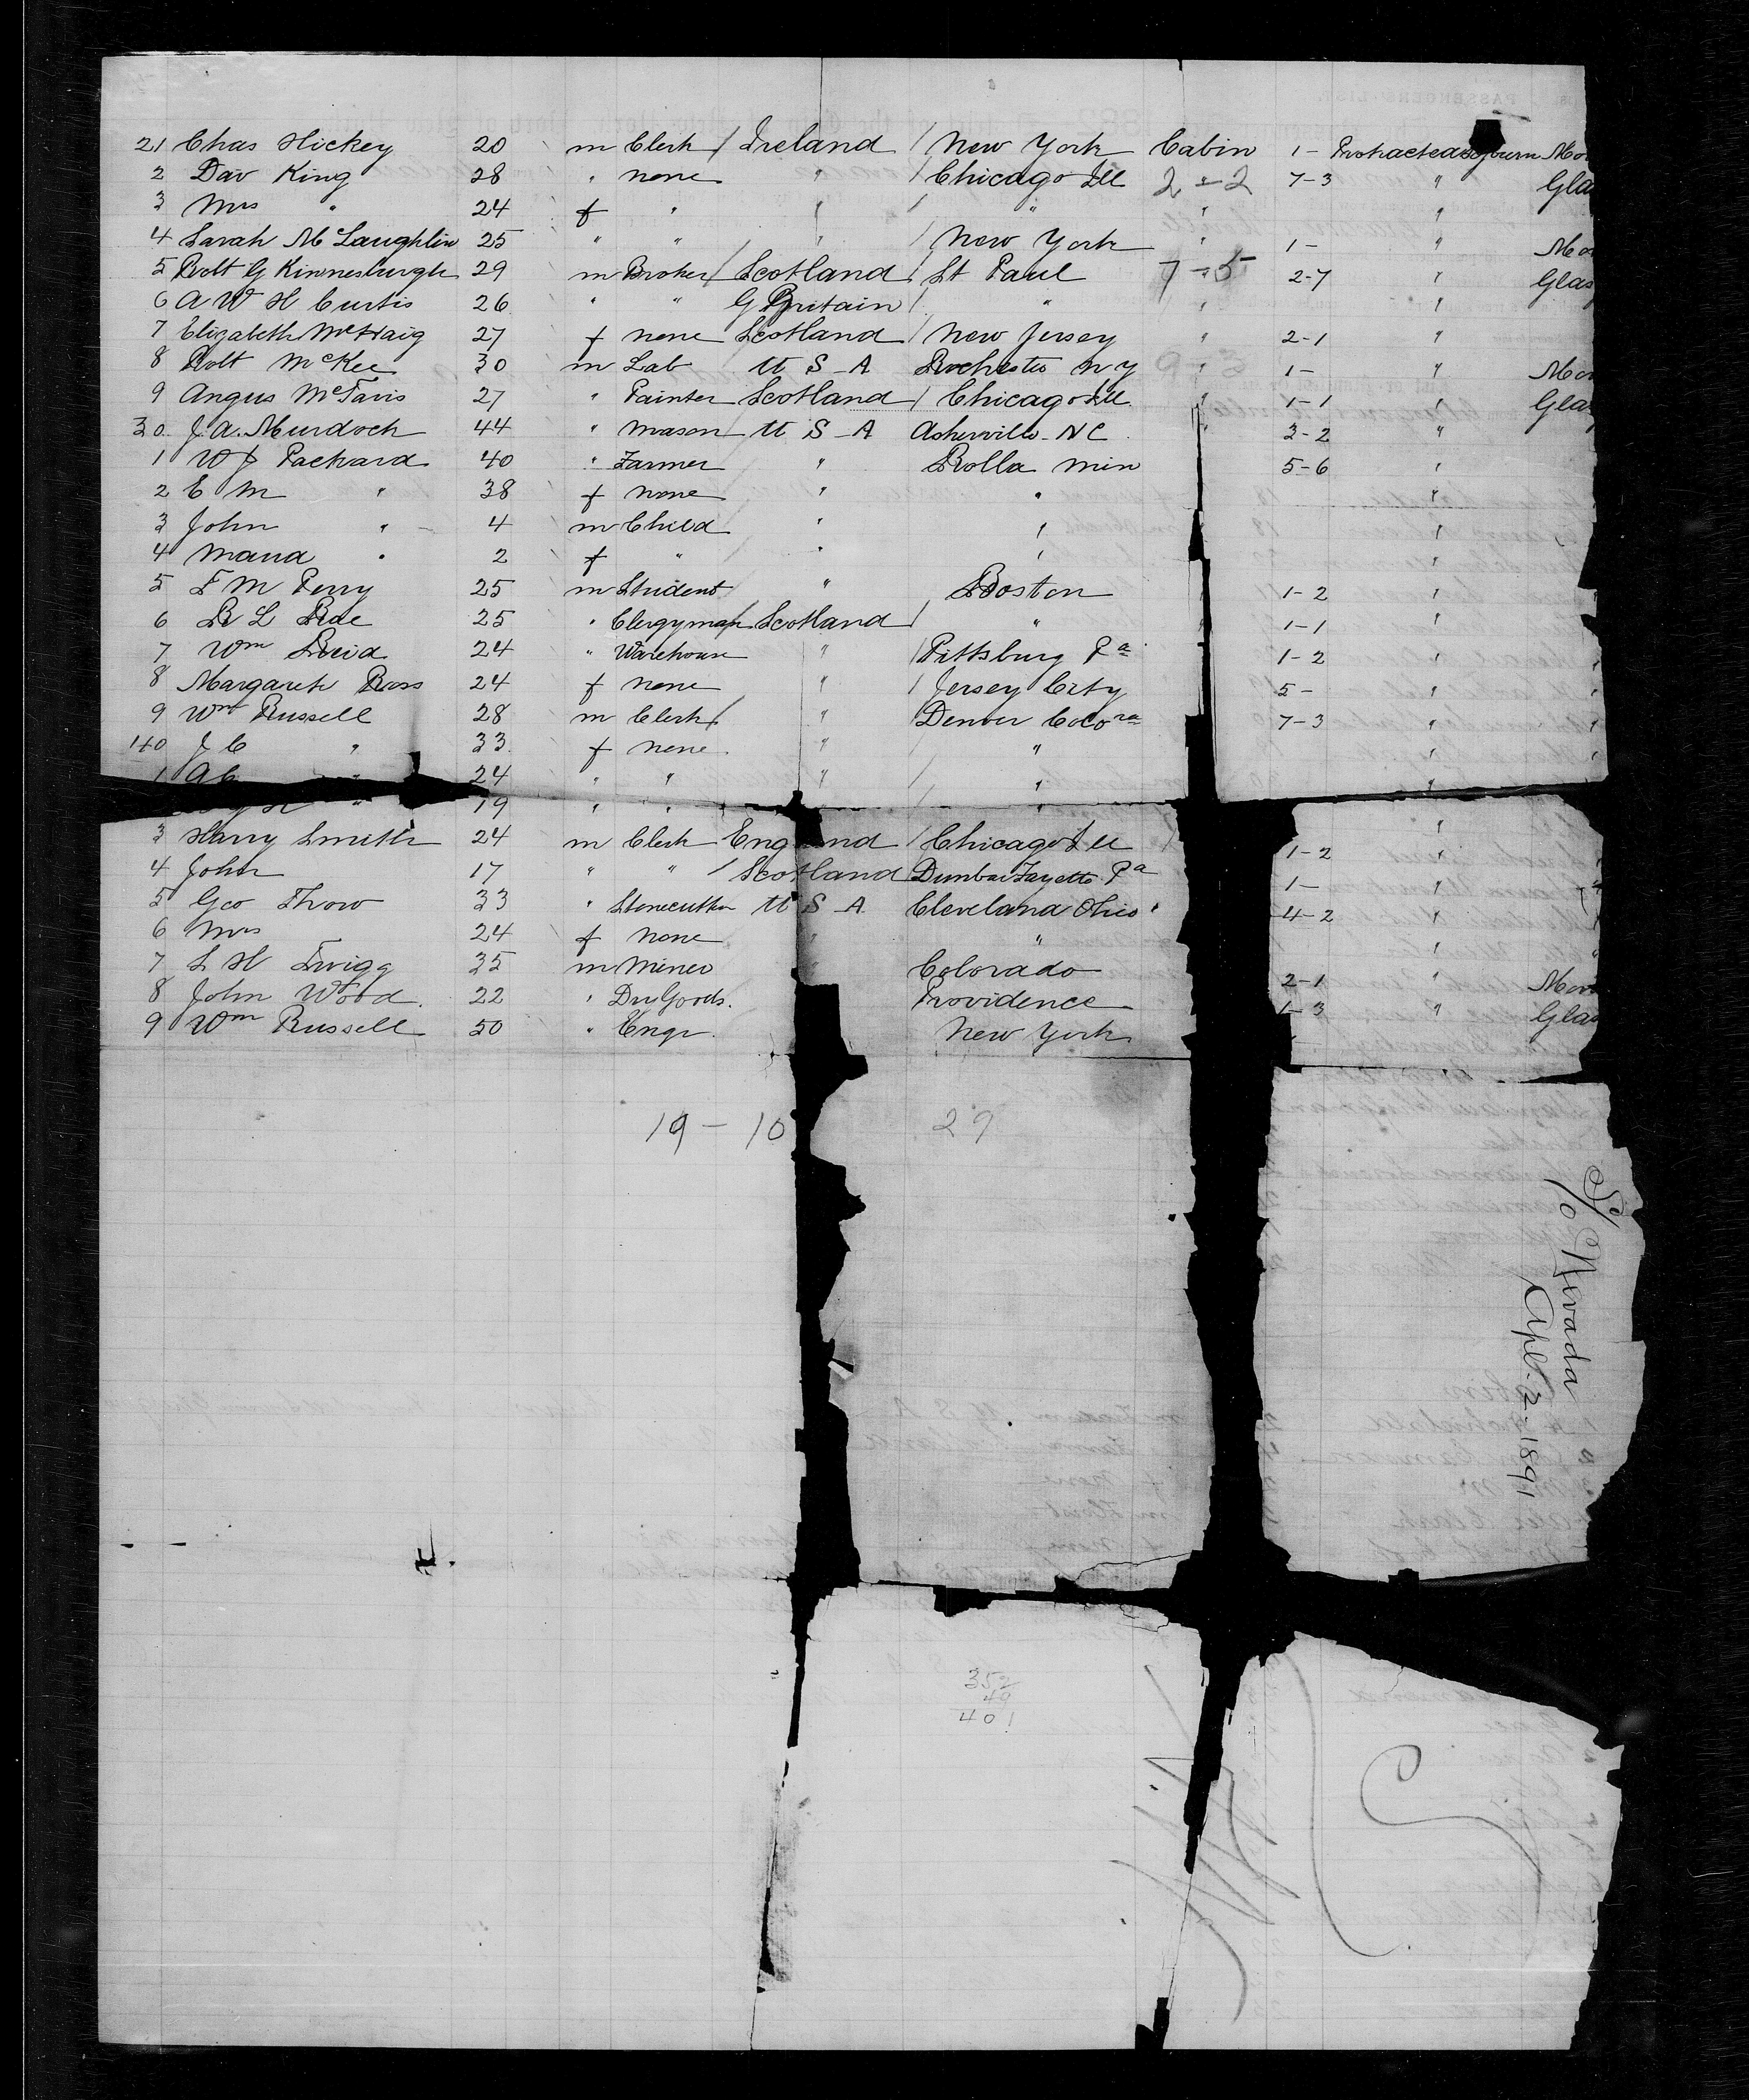 21 Chas Hickey 20 m Clerk / Ireland / New York Cabin 1- Protracted Sojourn Mo
2 Dav King 28 " none " / Chicago Ill 2-2 7-3 " Gla
3 Mrs " 24 f " " / " " "
4 Sarah McLaughlin 25 " " " / New York " 1- " Mo
5 Robt G Kinnesburgh 29 m Broker / Scotland / St Paul 7-5 2-7 " Glas
6 A W H Curtis 26 " " G Britain / " " "
7 Elizabeth McHaig 27 f none Scotland / New Jersey " 2-1 "
8 Robt McKee 30 m Lab U S A Rochester N Y " 1- " Mo
9 Angus McTavis 27 " Painter Scotland / Chicago Ill " 1-1 " Gla
30 J. A. Murdoch 44 " Mason U S A Asherville N C " 3-2 "
1 W J Packard 40 " Farmer " Rolla Min 5-6 "
2 E M " 38 f none " " "
3 John " 4 m Child " " "
4 Maud " 2 f " " " "
5 F M Perry 25 m Student " Boston 1-2 "
6 R L Rae 25 " Clergyman Scotland / " 1-1 "
7 Wm Reid 24 " Warehouse " / Pittsburg Pa 1-2 "
8 Margaret Ross 24 f none " / Jersey City 5- "
9 Wm Russell 28 m Clerk / " Denver Colora 7-3 "
40 J C " 33 f none " / " "
1 A C " 24 " " " / " "
19 " " / "
3 Harry Smith 24 m Clerk England / Chicago Ill 1-2 "
4 John 17 " " / Scotland Dunbar Fayette Pa 1- "
5 Geo Throw 33 " Stonecutter U S A Cleveland Ohio 4-2 "
6 Mrs 24 f none " " "
7 L H Twigg 35 m Miner " Colorado 2-1 " Mo
8 John Wood 22 " Dry Goods. Providence 1-3 " Gla
9 Wm Russell 50 " Engr. New York
19 - 10 29
S/S Nevada
Apl. 2-1891
352
49
401